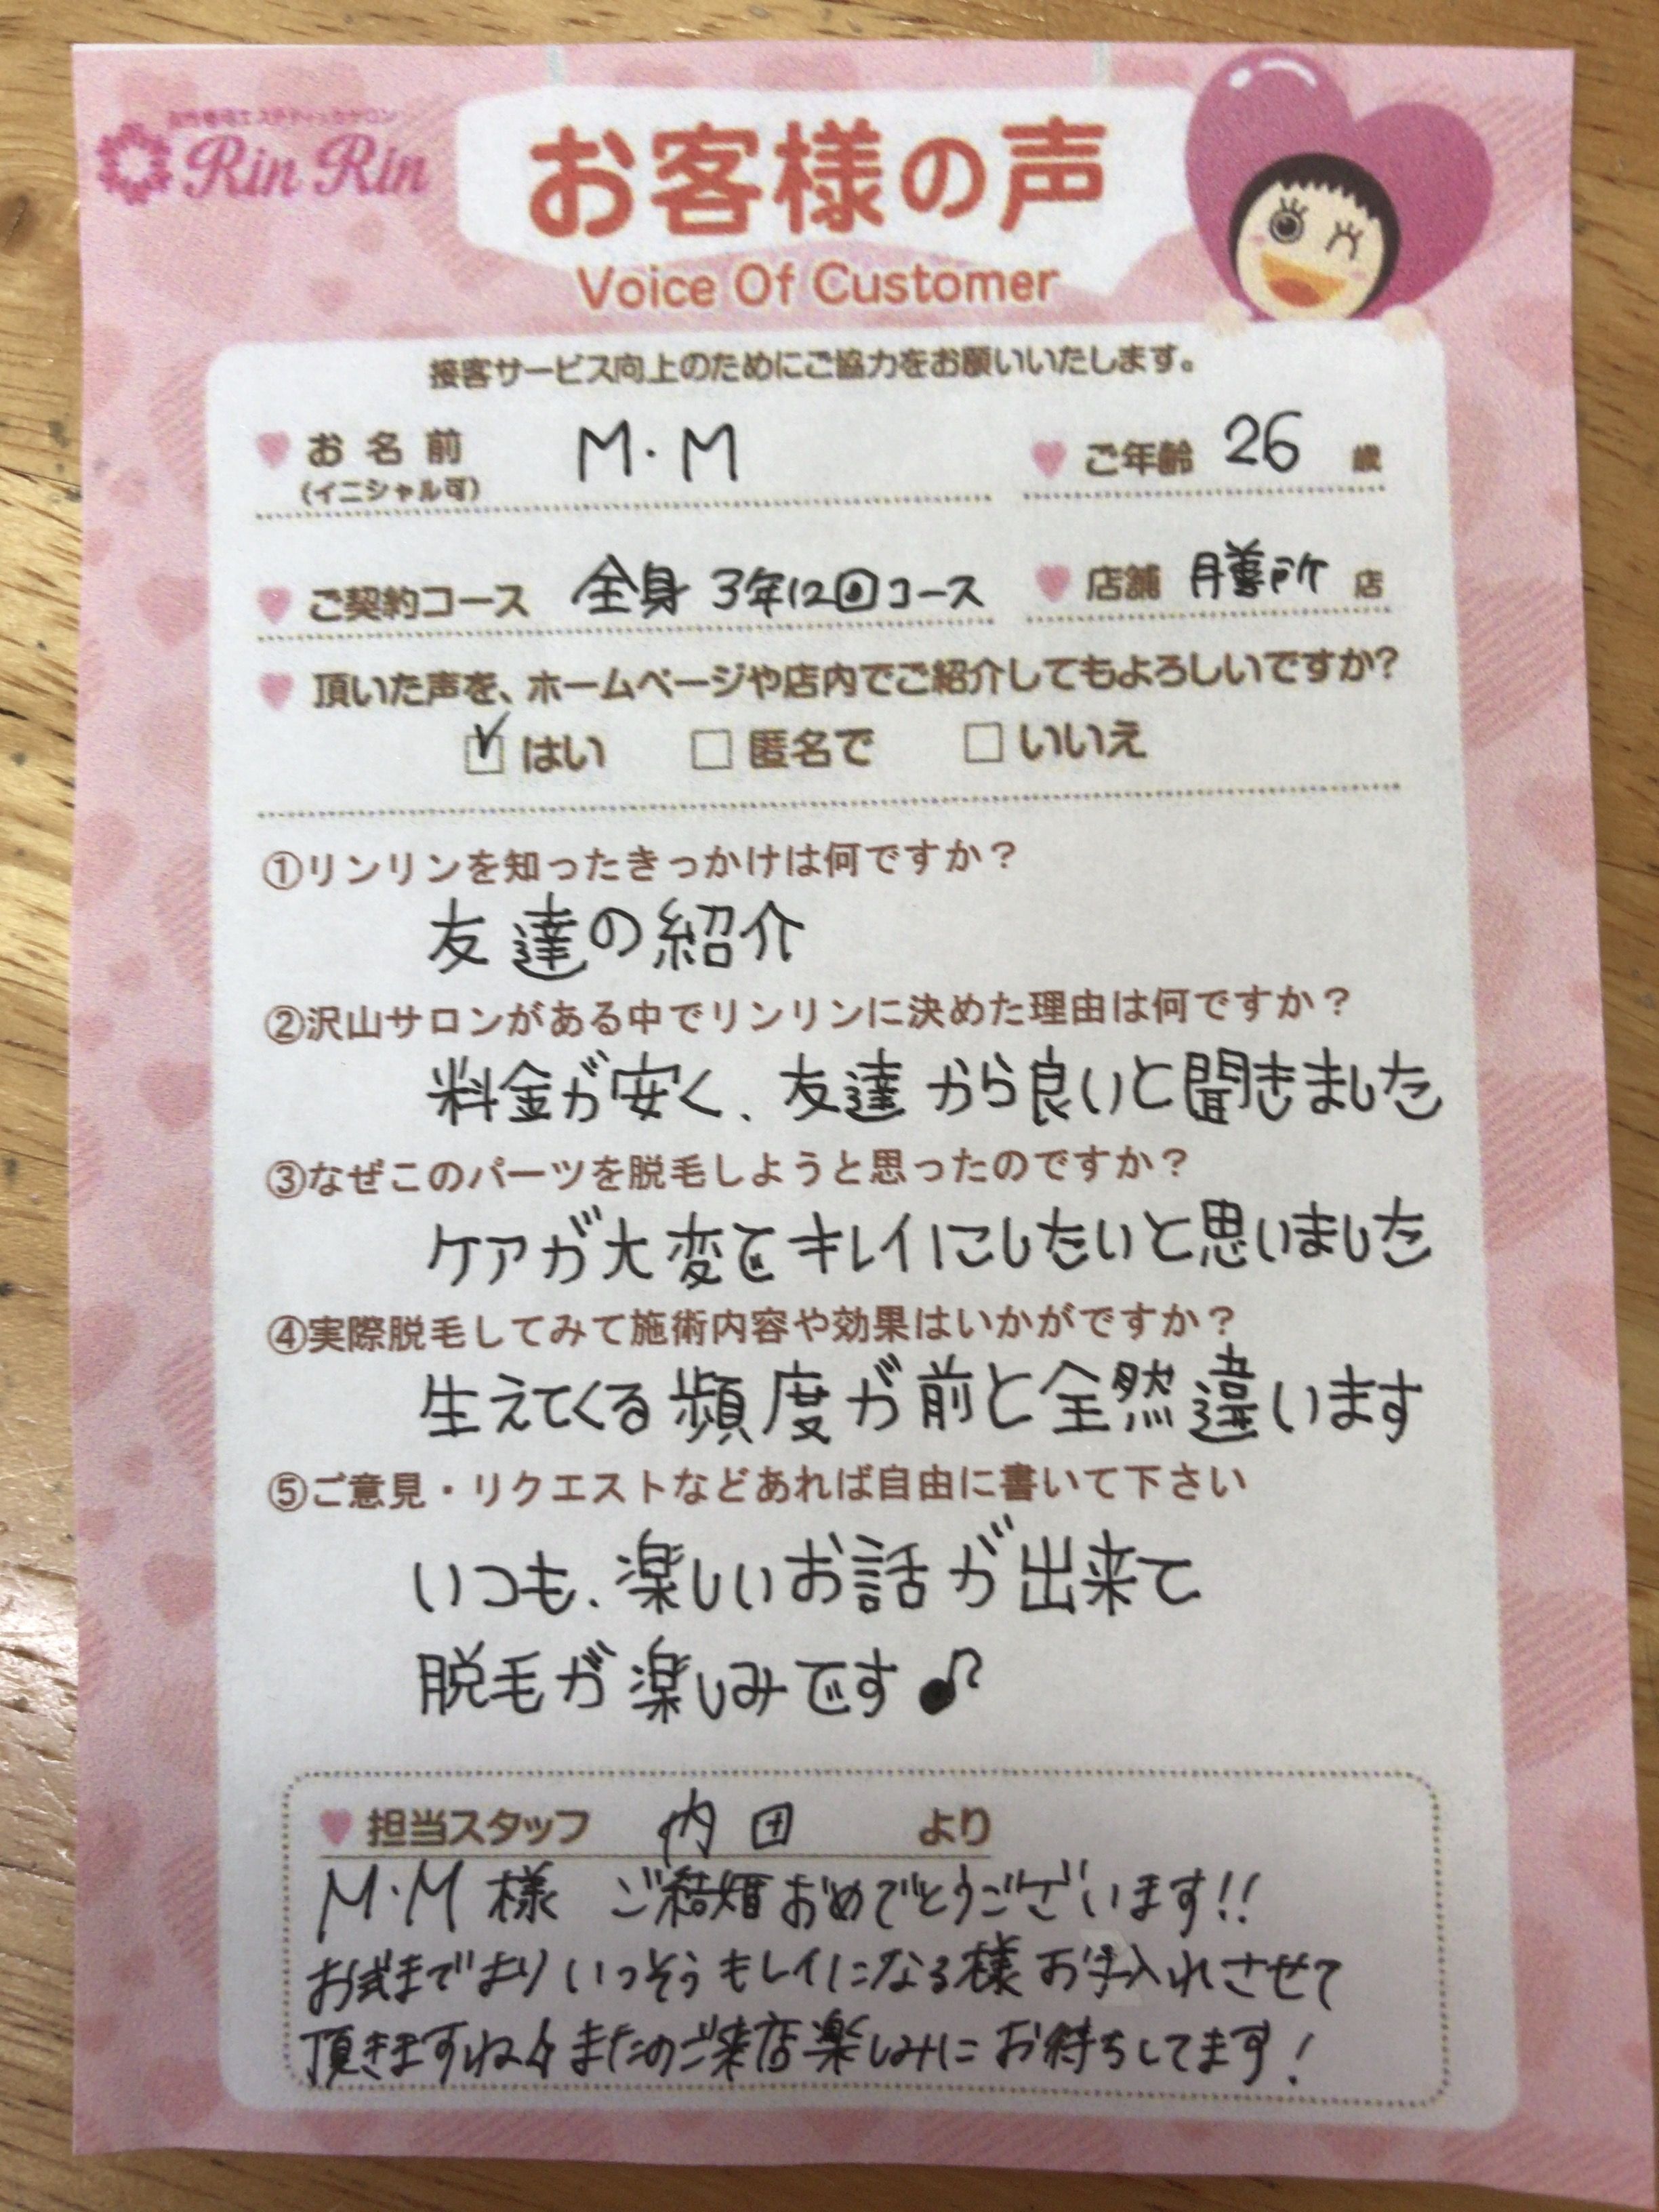 女性専用エステティックサロン
Rin Rin
お客様の声
Voice Of Customer
接客サービス向上のためにご協力をお願いいたします。
お名前 M・M ご年齢 26 歳
(イニシャル可)
ご契約コース 全身 3年12回コース 店舗 膳所 店
頂いた声を、ホームページや店内でご紹介してもよろしいですか?
はい 匿名で いいえ
①リンリンを知ったきっかけは何ですか？
友達の紹介
②沢山サロンがある中でリンリンに決めた理由は何ですか？
料金が安く、友達から良いと聞きました
③なぜこのパーツを脱毛しようと思ったのですか？
ケアが大変でキレイにしたいと思いました
④実際脱毛してみて施術内容や効果はいかがですか？
生えてくる頻度が前と全然違います
⑤ご意見・リクエストなどあれば自由に書いて下さい
いつも、楽しいお話が出来て
脱毛が楽しみです♪
担当スタッフ 内田 より
M・M様 ご結婚おめでとうございます!!
お式までよりいっそうキレイになる様お手入れさせて
頂きますね♪またのご来店楽しみにお待ちしてます!